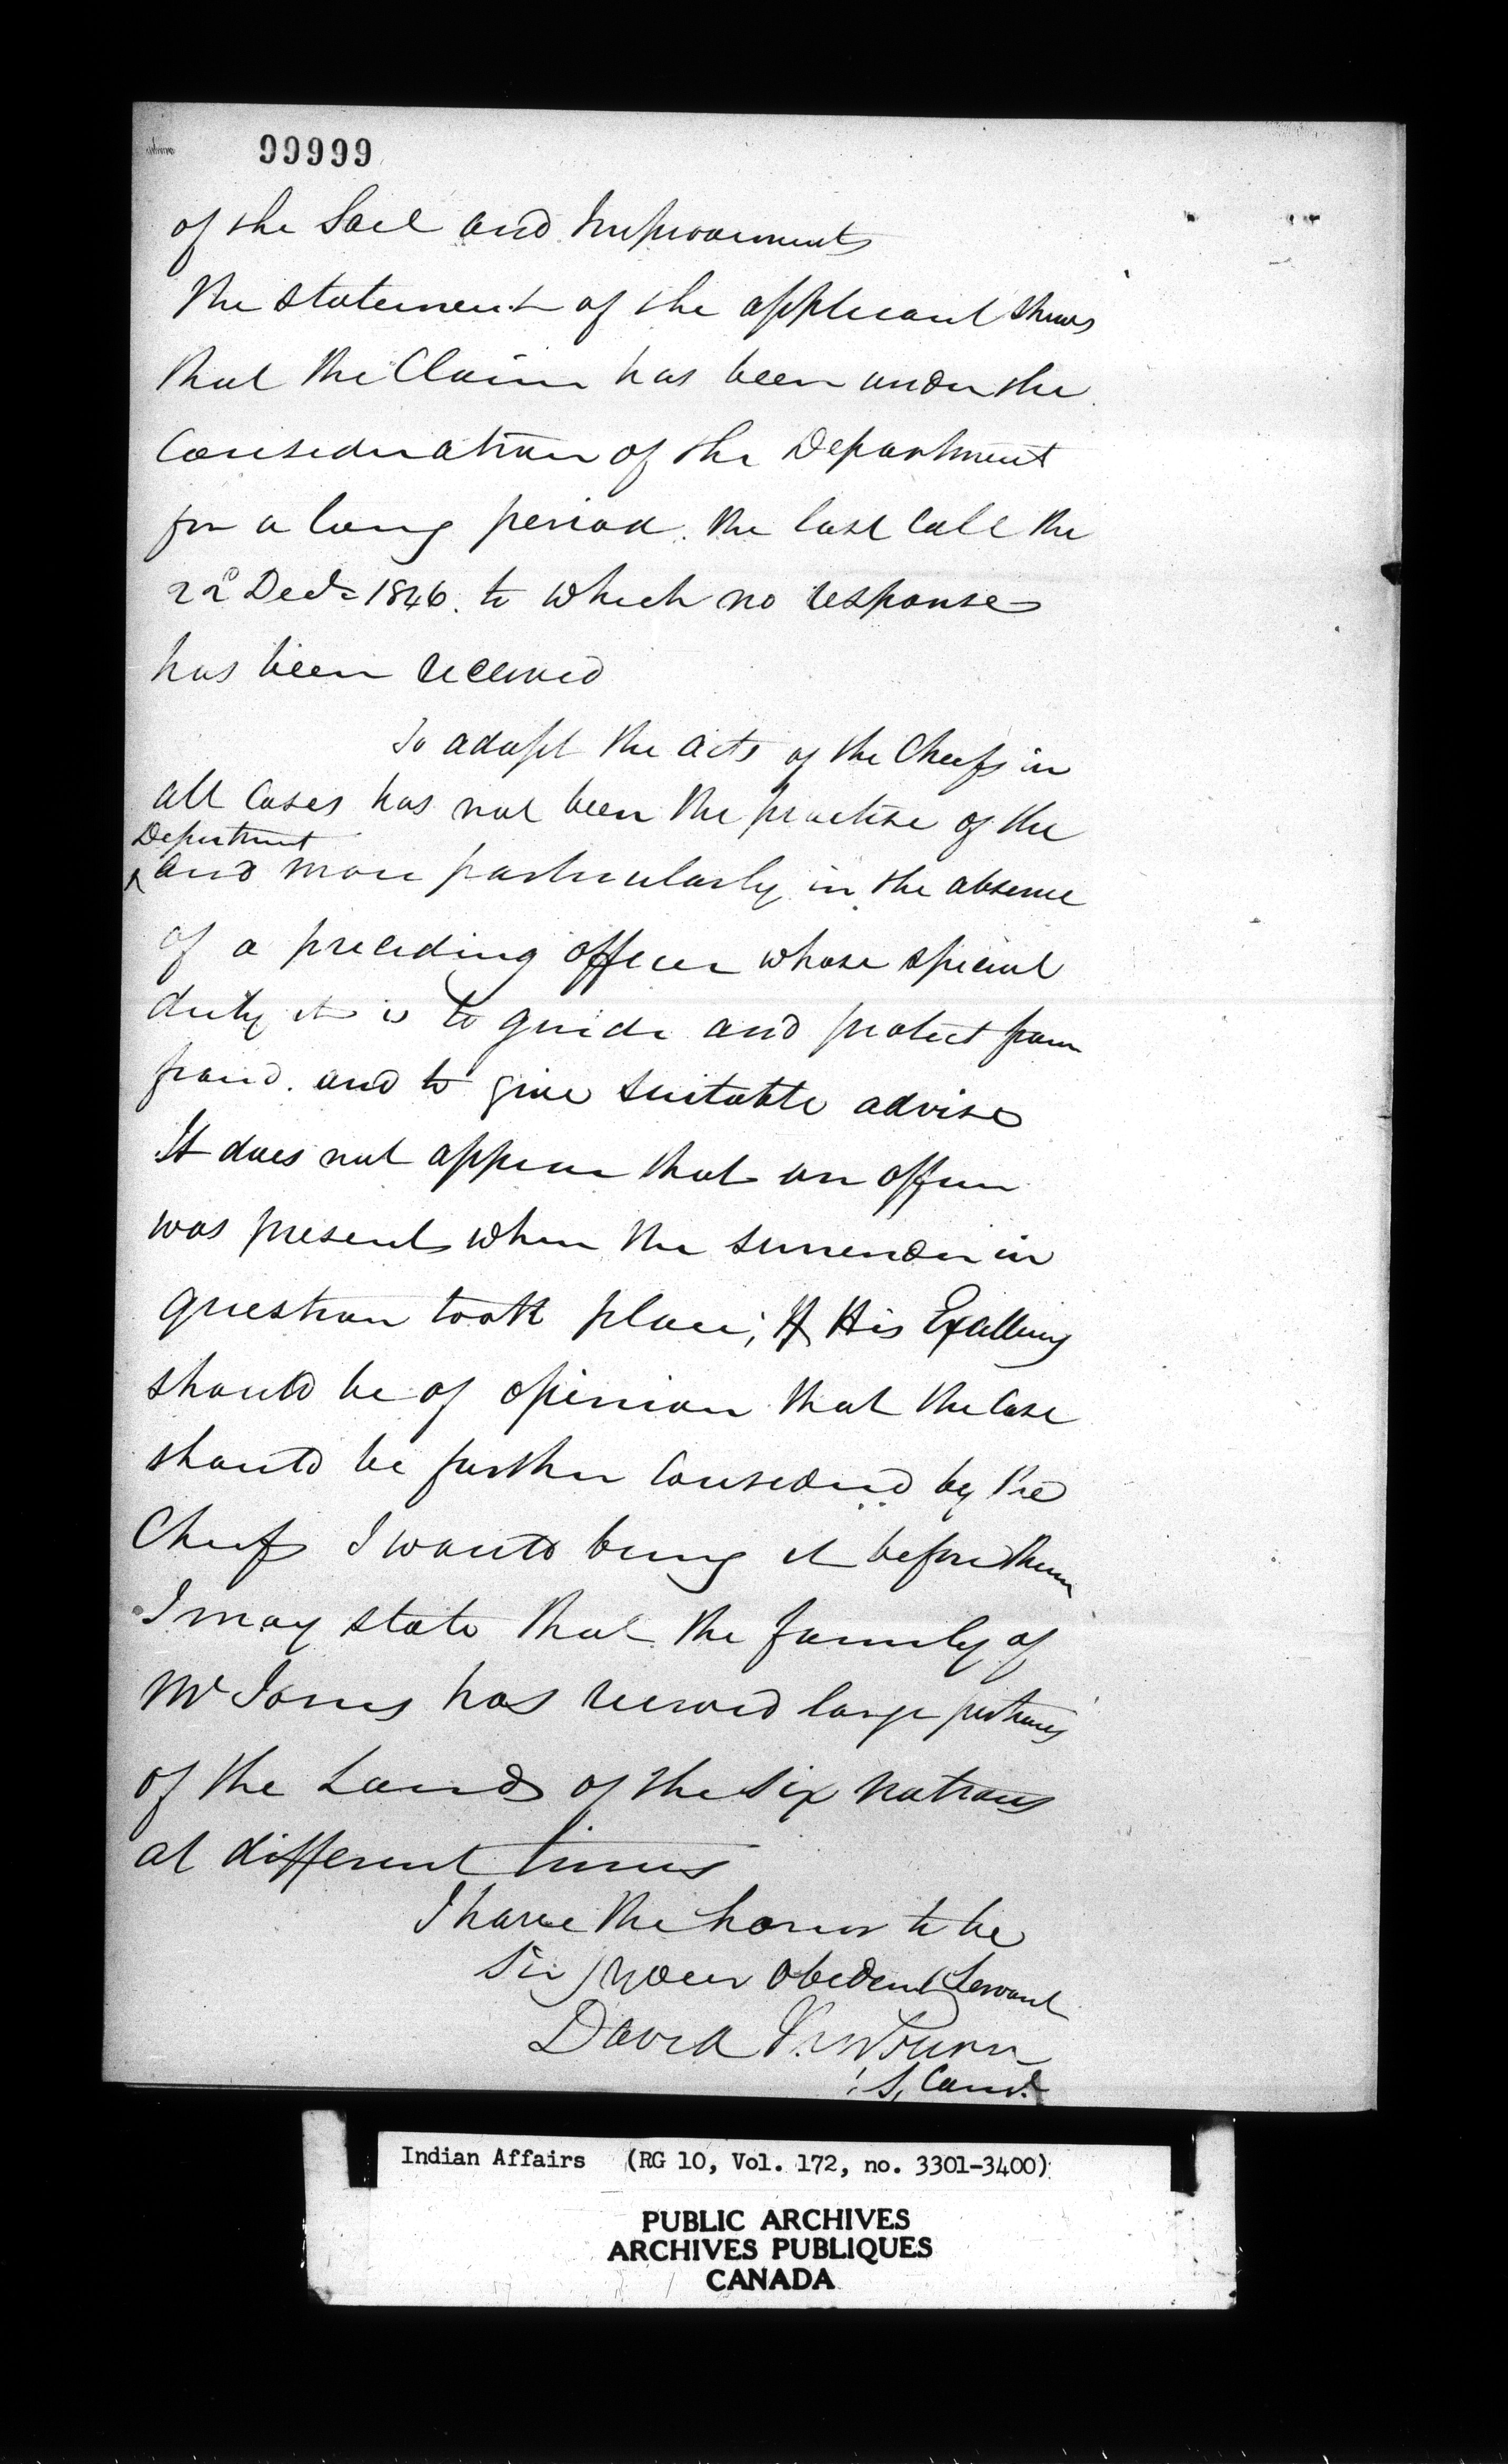 99999
of the Soil and Improvements
The statement of the applicant shews
that the Claim has been under the
Consideration of the Department
for a long period. the last Call the
22d Decr 1846. to which no response
has been received
To adopt the acts of the Chiefs in
all Cases has not been the practise of the
Department
and more particularly in the absence
of a preceding officer whose special
duty it is to guide and protect from
fraud. and to give suitable advise
It does not appear that an officer
was present when the surrender in
question took place; If His Excellency
should be of opinion that the Case
should be further Considered by the
Chiefs I would bring it before them
I may state that the family of
Mr Jones has received large portions
of the Lands of the Six Nations
at different times
I have the honor to be
Sir your obedient Servant
David Thorburn
S. Comr.
Indian Affairs (RG 10, Vol. 172, no. 3301-3400)
PUBLIC ARCHIVES
ARCHIVES PUBLIQUES
CANADA